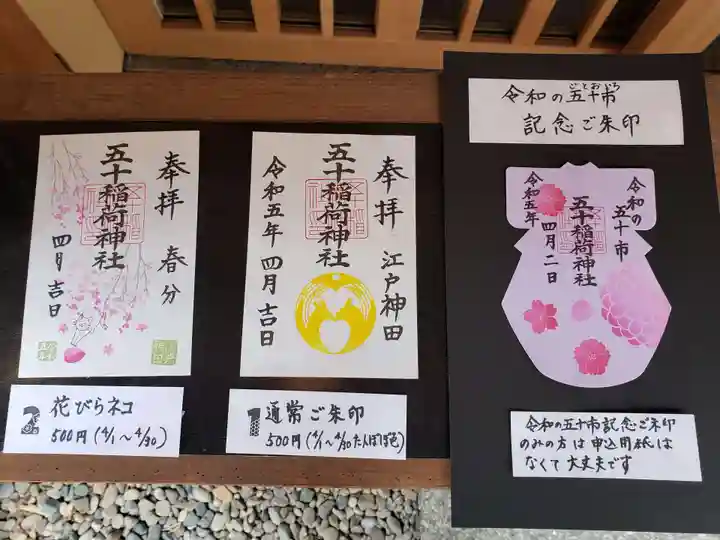 奉拝 春分
五十稲荷神社
四月吉日
2 花びらネコ
500円(4/1〜4/30)
奉拝 江戸神田
五十稲荷神社
令和五年四月吉日
1 通常ご朱印
500円(4/1〜4/30たんぽぽ色)
令和の五十市
ごとおいち
記念ご朱印
令和の五十市
五十稲荷神社
四月二日
令和五年
令和の五十市記念ご朱印
のみの方は申込用紙は
なくて大丈夫です